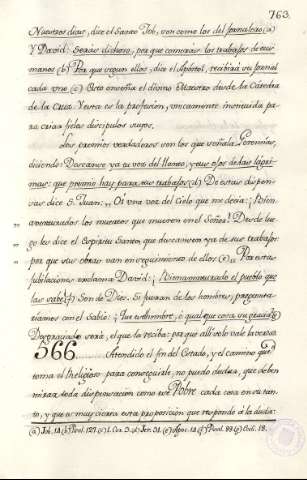 763
Nuestros dias, dice el Santo Job, son como los del jornalero (a)
Y David: Serás dichoso, por que comerás los trabajos de tus
manos (b) Por que segun ellos, dice el Apóstol, recibirá su jornal
cada uno (c) Esto enseña el divino Maestro desde la Cátedra
de la Cruz. Y esta es la profesion, unicamente instituida pa-
ra criar fieles discipulos suyos.
Los premios verdaderos son los que señala Jeremias,
diciendo: Descanse ya tu voz del llanto, y tus ojos de las lagri-
mas: que premio hay para tus trabajos (d) De estas dispen-
sas dice S. Juan: „ Oí una voz del Cielo que me decia: ¡Bien
„ aventurados los muertos que mueren en el Señor! Desde lue-
„ go les dice el Espiritu Santo, que descansen ya de sus trabajos:
„ por que sus obras van en seguimiento de ellos (e)„ Por esta
jubilacion exclama David: ¡Bienaventurado el pueblo que
las sabe (f) Son de Dios. Si fueran de los hombres, pregunta-
riamos con el Sabio: ¿
Desgraciado será, el que la reciba: por que allí solo vale la
566 Atendido el fin del Estado, y el camino que
toma el Religioso para conseguirle, no puedo dudar, que deben
mirar toda dispensacion como
Pobre cada cosa en su tan-
to, y que es muy clara esta proposicion que responde á la duda:
(a) Job. 14 (b) Psal. 127. (c) 1. Cor. 3. (d) Jer. 31. (e) Apoc. 14 (f) Psal. 88 (g) Ecli. 18.